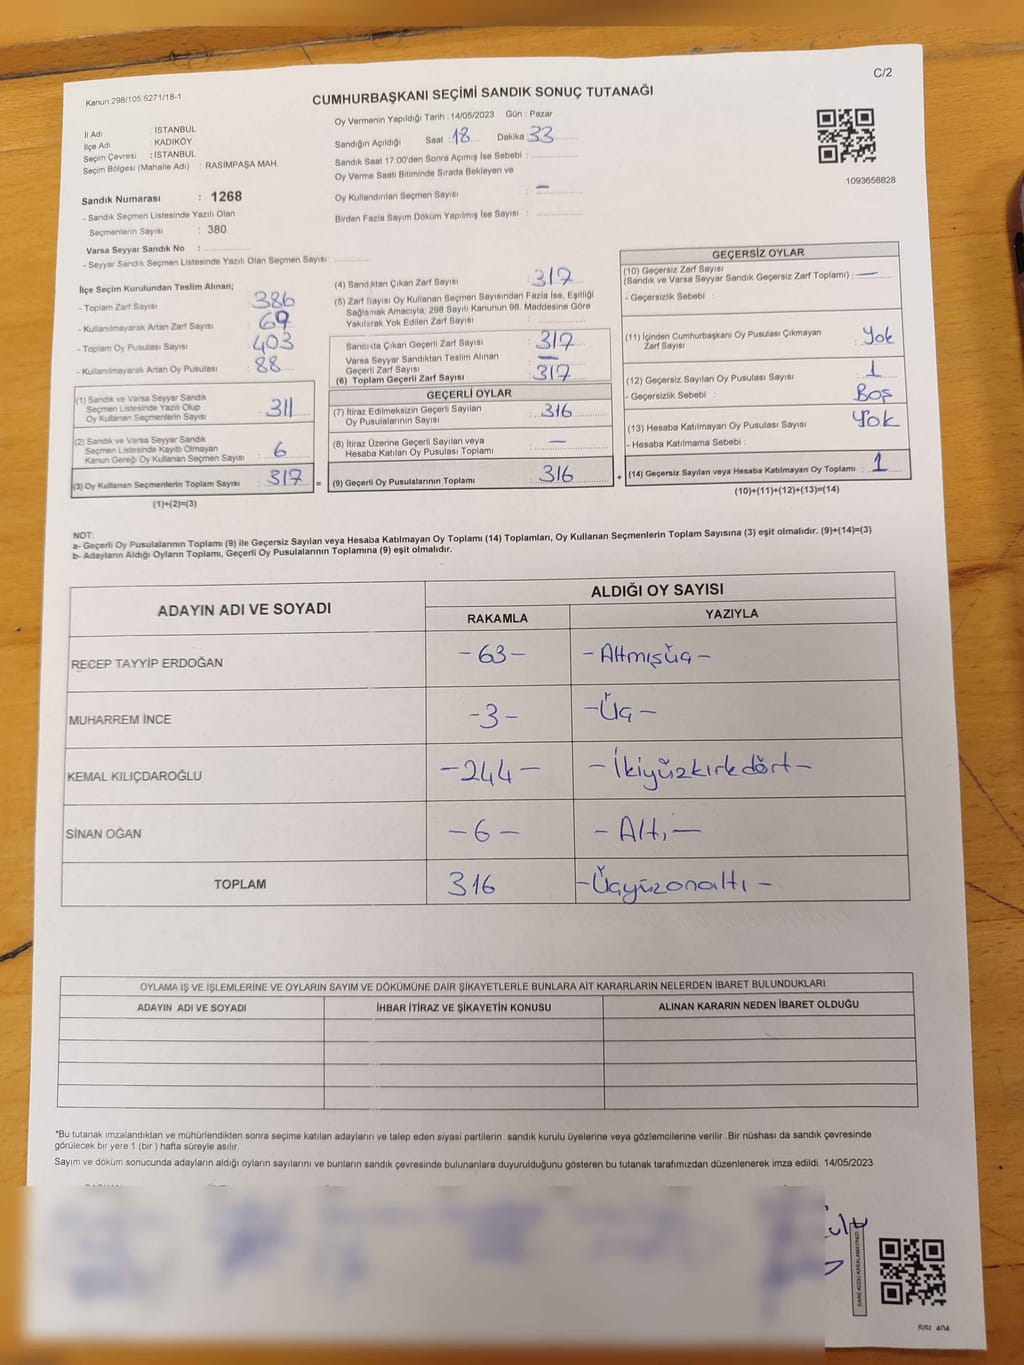 C/2
Kanun 298/105 6271/18-1
CUMHURBAŞKANI SEÇİMİ SANDIK SONUÇ TUTANAĞI
İl Adı : İSTANBUL
İlçe Adı : KADIKÖY
Seçim Çevresi : İSTANBUL
Seçim Bölgesi (Mahalle Adı) : RASİMPAŞA MAH.
Sandık Numarası : 1268
- Sandık Seçmen Listesinde Yazılı Olan
Seçmenlerin Sayısı : 380
Varsa Seyyar Sandık No :
- Seyyar Sandık Seçmen Listesinde Yazılı Olan Seçmen Sayısı:
Oy Vermenin Yapıldığı Tarih : 14/05/2023 Gün : Pazar
Sandığın Açıldığı Saat 18 Dakika 33
Sandık Saat 17:00'den Sonra Açımış İse Sebebi :
Oy Verme Saati Bitiminde Sırada Bekleyen ve
Oy Kullandırılan Seçmen Sayısı : —
Birden Fazla Sayım Döküm Yapılmış İse Sayısı :
1093658828
İlçe Seçim Kurulundan Teslim Alınan;
- Toplam Zarf Sayısı : 386
- Kullanılmayarak Artan Zarf Sayısı : 69
- Toplam Oy Pusulası Sayısı : 403
- Kullanılmayarak Artan Oy Pusulası : 88
(1) Sandık ve Varsa Seyyar Sandık
Seçmen Listesinde Yazılı Olup
Oy Kullanan Seçmenlerin Sayısı : 311
(2) Sandık ve Varsa Seyyar Sandık
Seçmen Listesinde Kayıtlı Olmayan
Kanun Gereği Oy Kullanan Seçmen Sayısı : 6
(3) Oy Kullanan Seçmenlerin Toplam Sayısı : 317 =
(1)+(2)=(3)
(4) Sandıktan Çıkan Zarf Sayısı : 317
(5) Zarf Sayısı Oy Kullanan Seçmen Sayısından Fazla İse, Eşitliği
Sağlamak Amacıyla; 298 Sayılı Kanunun 98. Maddesine Göre
Yakılarak Yok Edilen Zarf Sayısı :
Sandıkta Çıkan Geçerli Zarf Sayısı : 317
Varsa Seyyar Sandıktan Teslim Alınan
Geçerli Zarf Sayısı : —
(6) Toplam Geçerli Zarf Sayısı : 317
GEÇERLİ OYLAR
(7) İtiraz Edilmeksizin Geçerli Sayılan
Oy Pusulalarının Sayısı : 316
(8) İtiraz Üzerine Geçerli Sayılan veya
Hesaba Katılan Oy Pusulası Toplamı : —
(9) Geçerli Oy Pusulalarının Toplamı : 316 +
GEÇERSİZ OYLAR
(10) Geçersiz Zarf Sayısı
(Sandık ve Varsa Seyyar Sandık Geçersiz Zarf Toplamı) : —
- Geçersizlik Sebebi :
(11) İçinden Cumhurbaşkanı Oy Pusulası Çıkmayan
Zarf Sayısı : Yok
(12) Geçersiz Sayılan Oy Pusulası Sayısı : 1
- Geçersizlik Sebebi : Boş
(13) Hesaba Katılmayan Oy Pusulası Sayısı : Yok
- Hesaba Katılmama Sebebi :
(14) Geçersiz Sayılan veya Hesaba Katılmayan Oy Toplamı : 1
(10)+(11)+(12)+(13)=(14)
NOT:
a- Geçerli Oy Pusulalarının Toplamı (9) ile Geçersiz Sayılan veya Hesaba Katılmayan Oy Toplamı (14) Toplamları, Oy Kullanan Seçmenlerin Toplam Sayısına (3) eşit olmalıdır. (9)+(14)=(3)
b- Adayların Aldığı Oyların Toplamı, Geçerli Oy Pusulalarının Toplamına (9) eşit olmalıdır.
ADAYIN ADI VE SOYADI
ALDIĞI OY SAYISI
RAKAMLA YAZIYLA
RECEP TAYYİP ERDOĞAN -63- -Altmışüç-
MUHARREM İNCE -3- -Üç-
KEMAL KILIÇDAROĞLU -244- -İkiyüzkırkdört-
SİNAN OĞAN -6- -Altı-
TOPLAM 316 -Üçyüzonaltı-
OYLAMA İŞ VE İŞLEMLERİNE VE OYLARIN SAYIM VE DÖKÜMÜNE DAİR ŞİKAYETLERLE BUNLARA AİT KARARLARIN NELERDEN İBARET BULUNDUKLARI
ADAYIN ADI VE SOYADI İHBAR İTİRAZ VE ŞİKAYETİN KONUSU ALINAN KARARIN NEDEN İBARET OLDUĞU
*Bu tutanak imzalandıktan ve mühürlendikten sonra seçime katılan adayların ve talep eden siyasi partilerin sandık kurulu üyelerine veya gözlemcilerine verilir .Bir nüshası da sandık çevresinde
görülecek bir yere 1 (bir ) hafta süreyle asılır.
Sayım ve döküm sonucunda adayların aldığı oyların sayılarını ve bunların sandık çevresinde bulunanlara duyurulduğunu gösteren bu tutanak tarafımızdan düzenlenerek imza edildi. 14/05/2023
KARE KODU KARALAMAYINIZ!